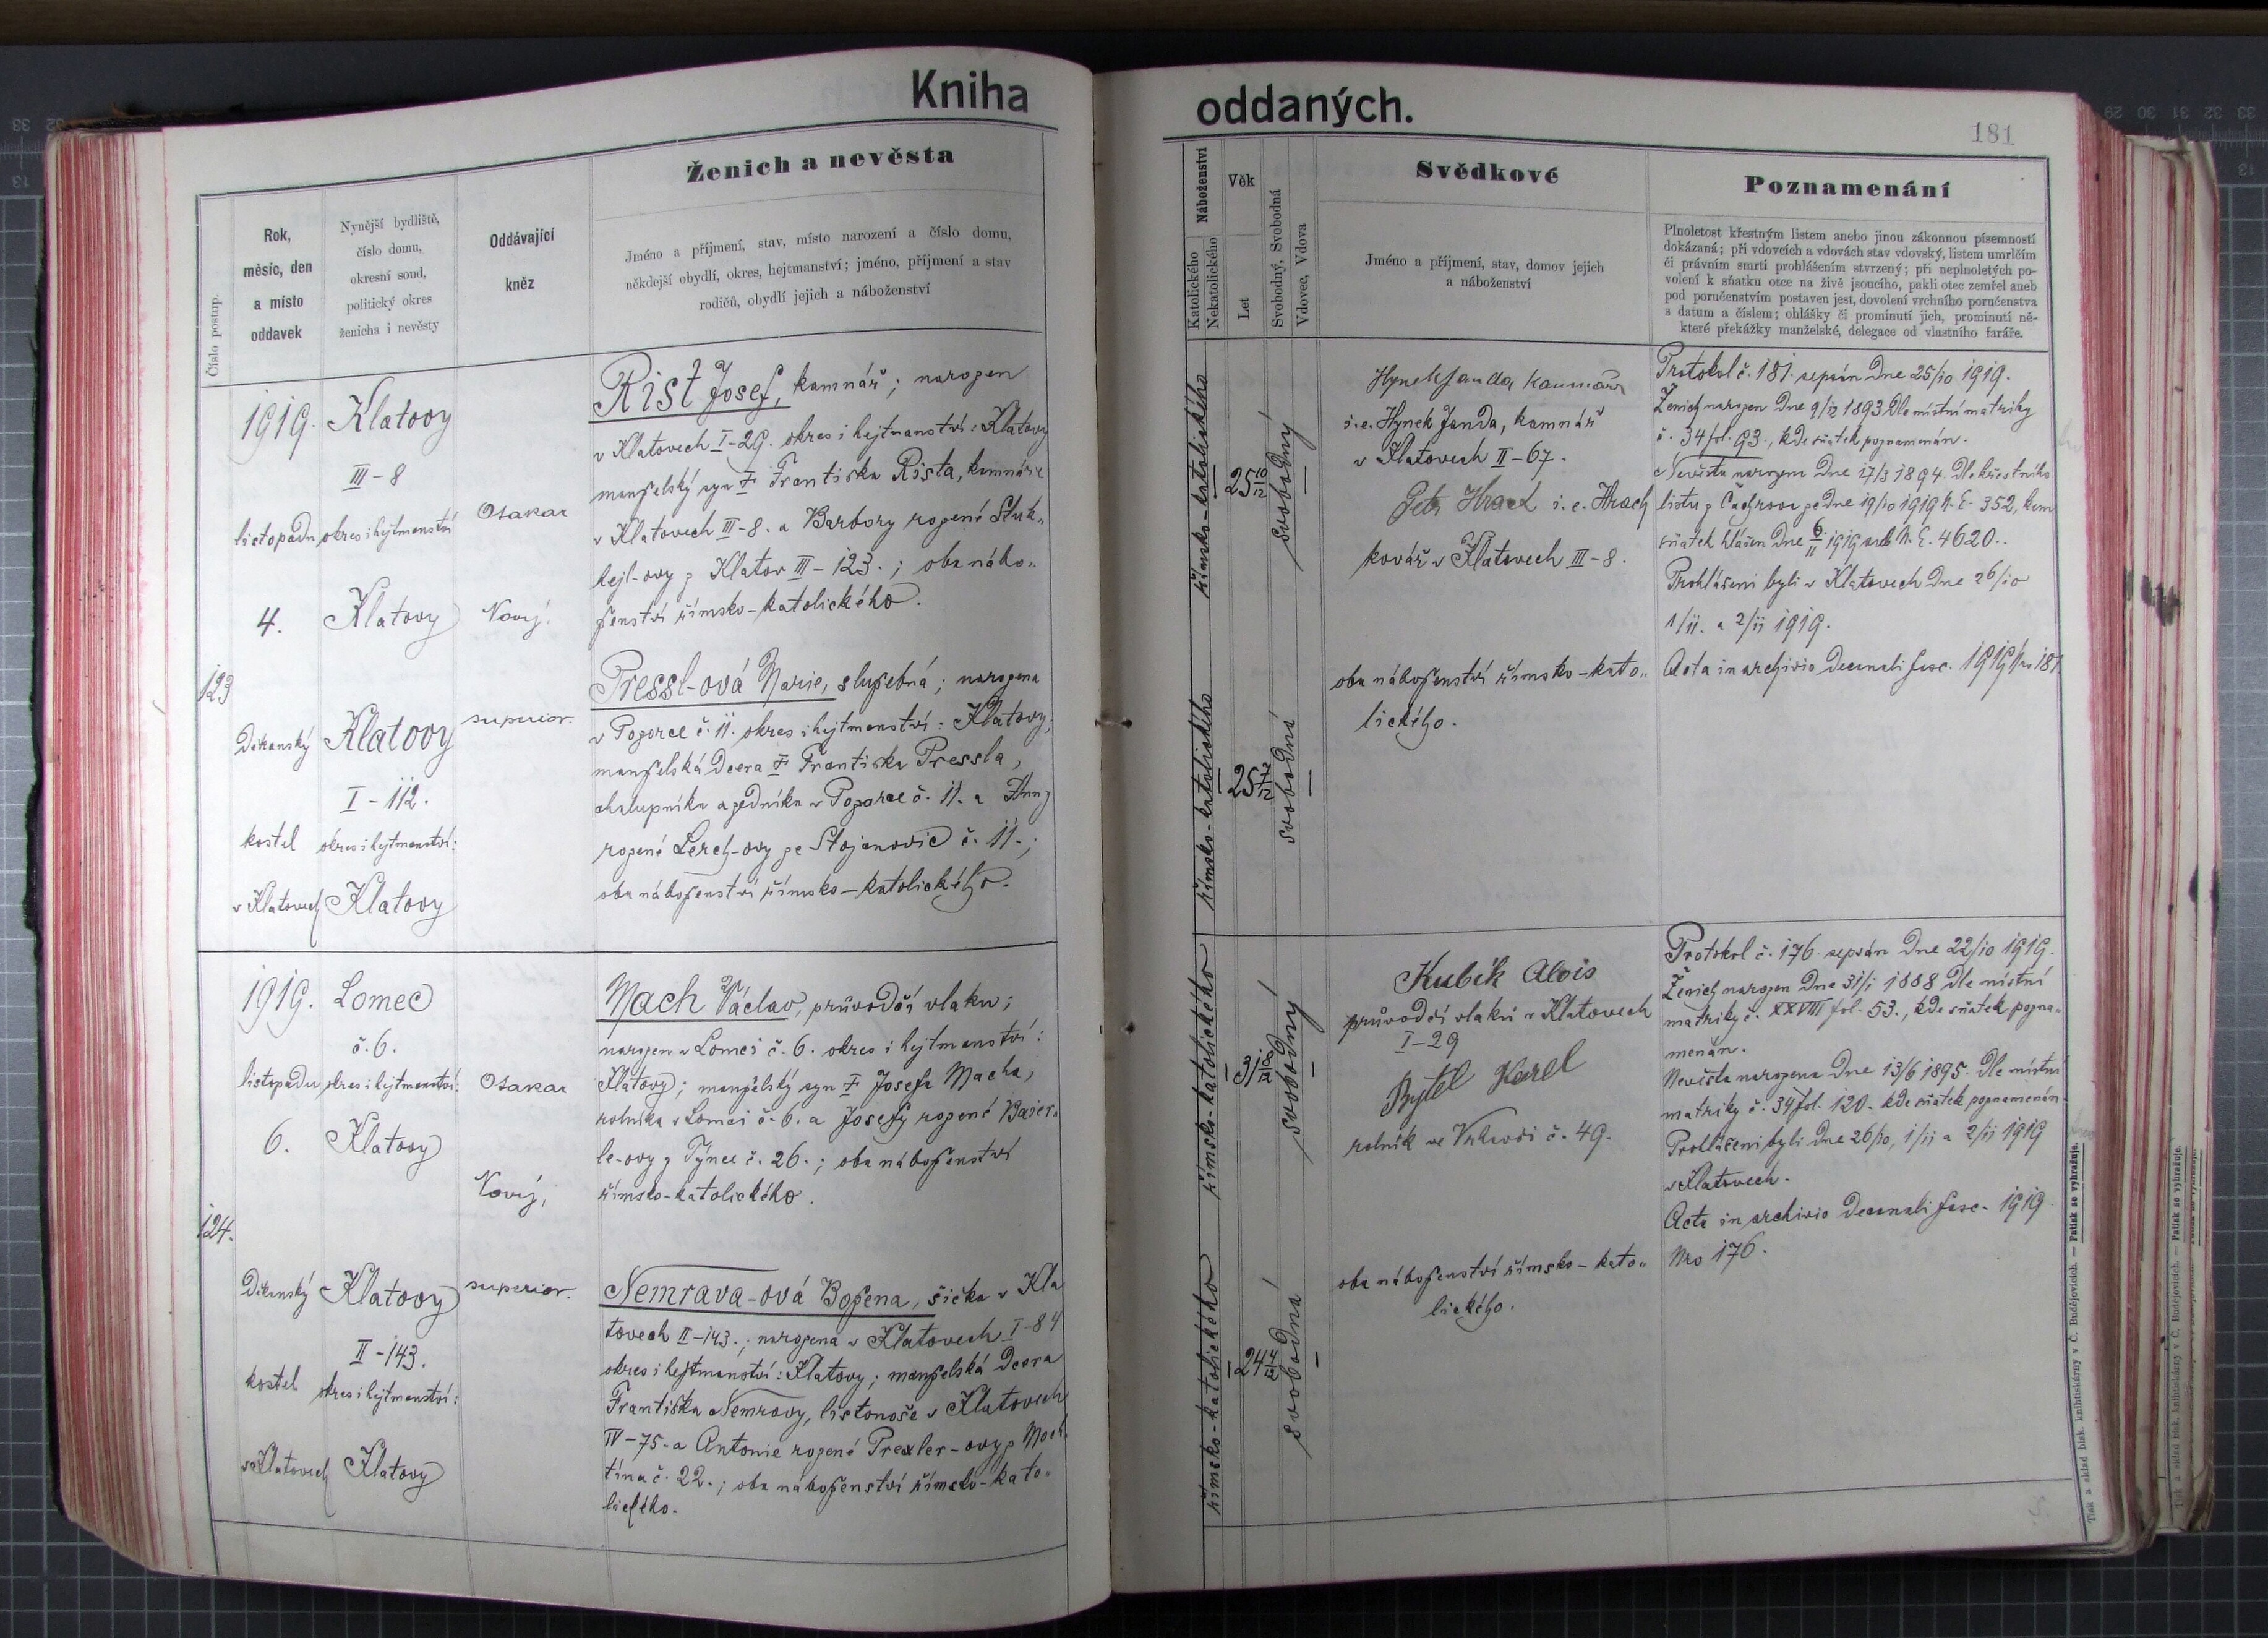 Kniha
oddaných.
181
Číslo postup.
Rok,
měsíc, den
a místo
oddavek
Nynější bydliště,
číslo domu,
okresní soud,
politický okres
ženicha i nevěsty
Oddávající
kněz
Ženich a nevěsta
Jméno a příjmení, stav, místo narození a číslo domu,
někdejší obydlí, okres, hejtmanství; jméno, příjmení a stav
rodičů, obydlí jejich a náboženství
Náboženství
Katolického
Nekatolického
Věk
Let
Svobodný, Svobodná
Vdovec, Vdova
Svědkové
Jméno a příjmení, stav, domov jejich
a náboženství
Poznamenání
Plnoletost křestným listem anebo jinou zákonnou písemností
dokázaná; při vdovcích a vdovách stav vdovský, listem umrlčím
či právním smrti prohlášením stvrzený; při neplnoletých po-
volení k sňatku otce na živě jsoucího, pakli otec zemřel aneb
pod poručenstvím postaven jest, dovolení vrchního poručenstva
s datum a číslem; ohlášky či prominutí jich, prominutí ně-
které překážky manželské, delegace od vlastního faráře.
123
1919.
listopadu
4.
Děkanský
kostel
v Klatovech
Klatovy
III-8
okres i hejtmanství
Klatovy
Klatovy
I-112.
okres i hejtmanství:
Klatovy
Otakar
Nový,
superior.
Rist Josef, kamnář; narozen
v Klatovech I-29. okres i hejtmanství: Klatovy
manželský syn † Františka Rista, kamnáře
v Klatovech III-8. a Barbory rozené Stuk-
hejl-ovy z Klatov III-123.; oba nábo-
ženství římsko-katolického.
Pressl-ová Marie, služebná; narozena
v Pozorce č. 11. okres i hejtmanství: Klatovy;
manželská dcera † Františka Pressla,
chalupníka a zedníka v Pozorce č. 11. a Anny
rozené Lerch-ovy ze Stojanovic č. 11.;
oba náboženství římsko-katolického.
římsko-katolického
25 10/12
svobodný
římsko-katolického
25 7/12
svobodná
Hynek Janda kamnář
i.e. Hynek Janda, kamnář
v Klatovech II-67.
Petr Hrach i.e. Hrach
kovář v Klatovech III-8.
oba náboženství římsko-kato-
lického.
Protokol č. 181. sepsán dne 25/10 1919.
Ženich narozen dne 9/12 1893 dle místní matriky
č. 34 fol. 93., kde sňatek poznamenán.
Nevěsta narozena dne 17/3 1894. dle křestního
listu z Čachrova ze dne 19/10 1919 N. E. 352, kam
sňatek hlášen dne 6/11 1919 sub N. E. 4620..
Prohlášeni byli v Klatovech dne 26/10
1/11. a 2/11 1919.
Acta in archivio decanali fasc. 1919 Nro 181.
124.
1919.
listopadu
6.
Děkanský
kostel
v Klatovech
Lomec
č. 6.
okres i hejtmanství:
Klatovy
Klatovy
II-143.
okres i hejtmanství:
Klatovy
Otakar
Nový,
superior.
Mach Václav, průvodčí vlaku;
narozen v Lomci č. 6. okres i hejtmanství:
Klatovy; manželský syn † Josefa Macha,
rolníka v Lomci č. 6. a Josefy rozené Baier-
le-ovy z Týnce č. 26.; oba náboženství
římsko-katolického.
Nemrava-ová Božena, šička v Kla
tovech II-143.; narozena v Klatovech I-84
okres i hejtmanství: Klatovy; manželská dcera
Františka Nemravy, listonoše v Klatovech
IV-75. a Antonie rozené Prexler-ovy z Moch
tína č. 22.; oba náboženství římsko-kato-
lického.
římsko-katolického
31 8/12
svobodný
římsko-katolického
24 4/12
svobodná
Kubík Alois
průvodčí vlaků v Klatovech
I-29
Bytel Karel
rolník ve Vrhovči č. 49.
oba náboženství římsko-kato-
lického.
Protokol č. 176. sepsán dne 22/10 1919.
Ženich narozen dne 31/1 1888 dle místní
matriky č. XXVIII fol. 53., kde sňatek pozna-
menán.
Nevěsta narozena dne 13/6 1895. dle místní
matriky č. 34 fol. 120. kde sňatek poznamenán.
Prohlášeni byli dne 26/10, 1/11 a 2/11 1919
v Klatovech.
Acta in archivio decanali fasc. 1919.
Nro 176.
Tisk a sklad bisk. knihtiskárny v Č. Budějovicích. — Patisk se vyhražuje.